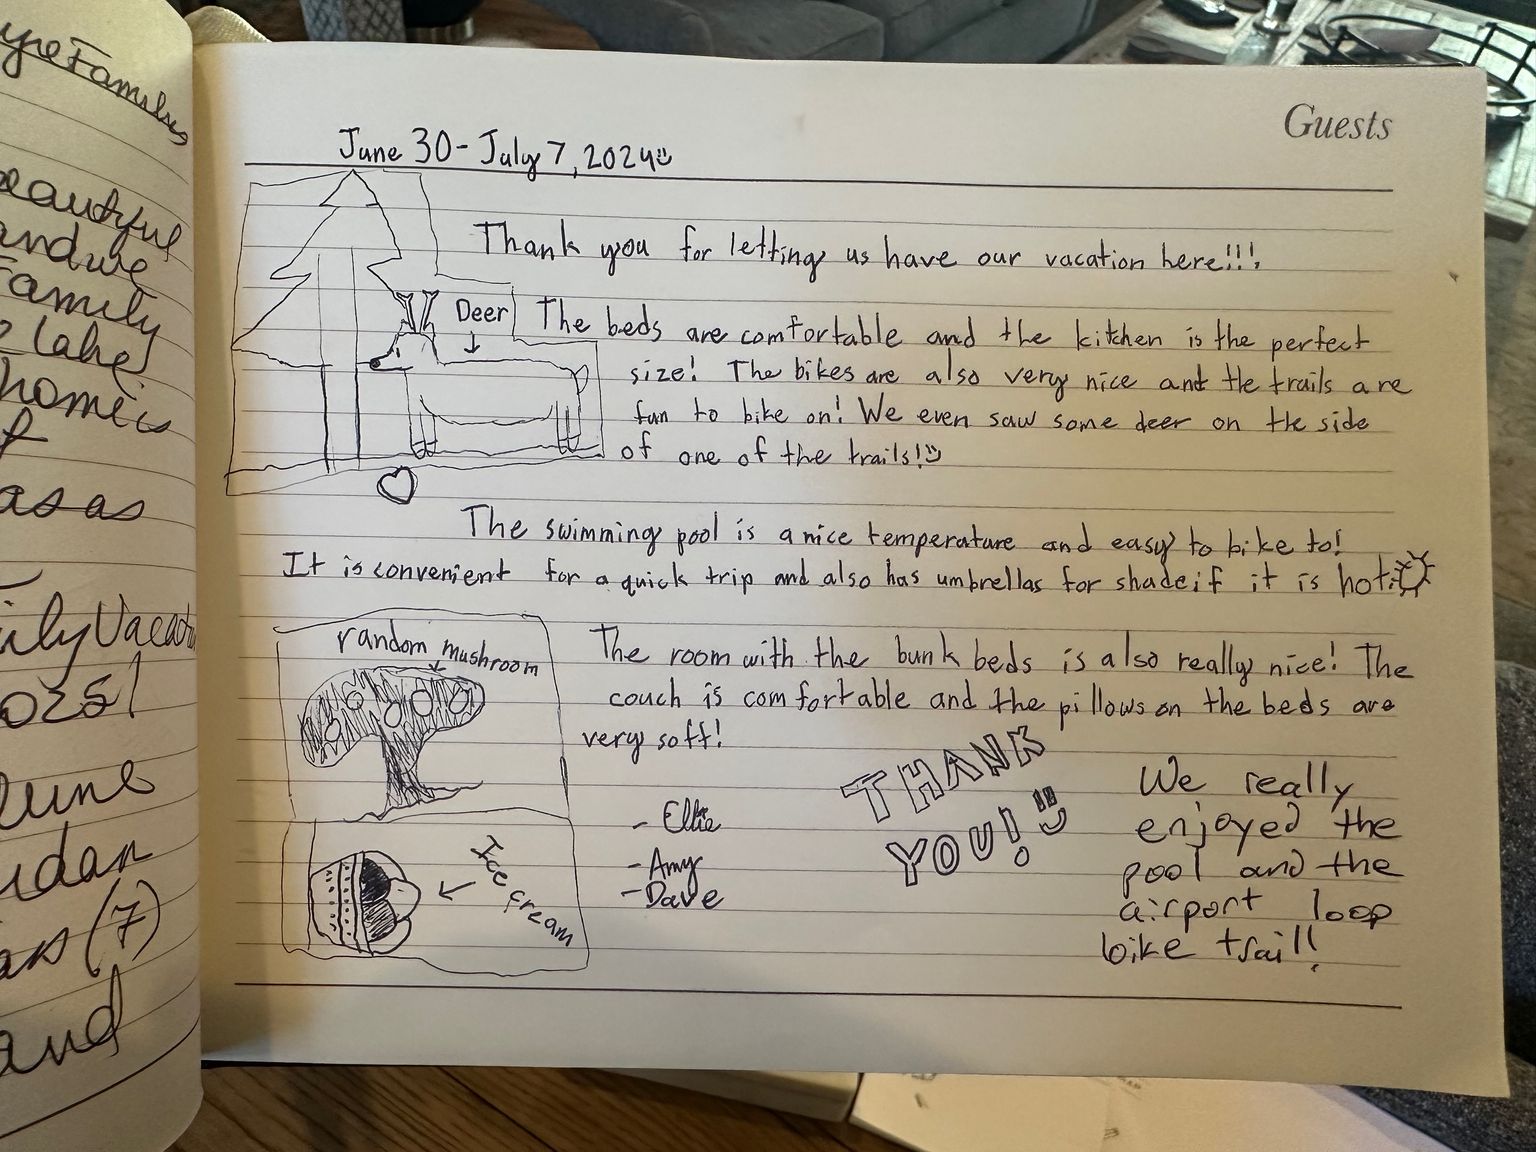 Families
beautiful
and we
Family
lake
home is
as as
Family Vacation
2025!
June
(7)
and
Guests
June 30 - July 7, 2024
Thank you for letting us have our vacation here!!!
Deer
The beds are comfortable and the kitchen is the perfect
size! The bikes are also very nice and the trails are
fun to bike on! We even saw some deer on the side
of one of the trails!
The swimming pool is a nice temperature and easy to bike to!
It is convenient for a quick trip and also has umbrellas for shade if it is hot.
random mushroom
The room with the bunk beds is also really nice! The
couch is comfortable and the pillows on the beds are
very soft!
- Ellie
- Amy
- Dave
Ice cream
THANK
YOU!
We really
enjoyed the
pool and the
airport loop
bike trail!